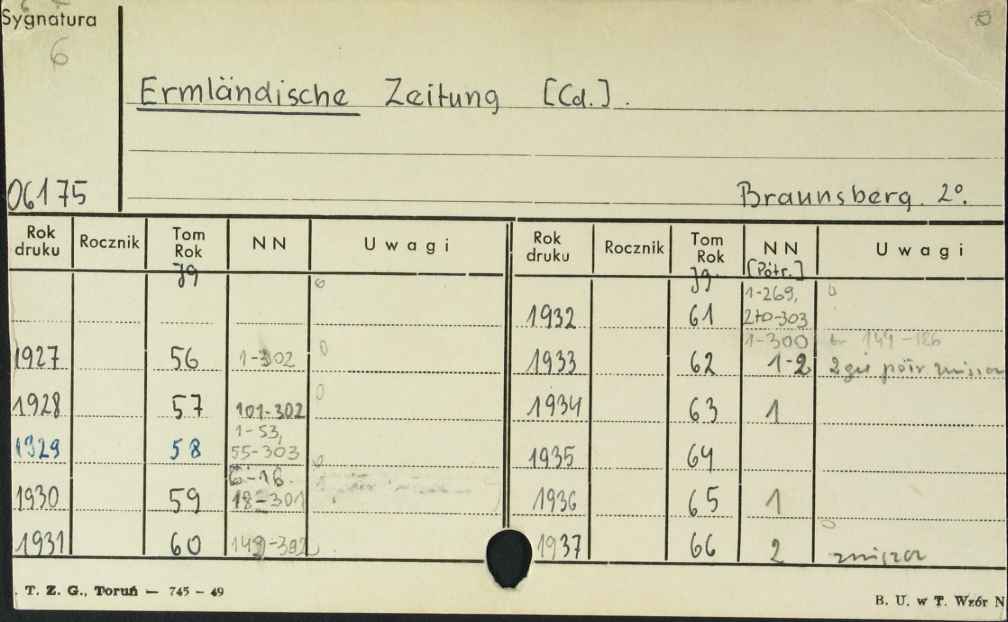 Sygnatura
6
Ermländische Zeitung [Cd.].
06175
Braunsberg. 2°.
Rok druku Rocznik Tom Rok NN Uwagi Rok druku Rocznik Tom Rok NN Uwagi
Jg Jg [Półr.]
1-269,
1932 61 270-303
1-300 149-186
1927 56 1-302 1933 62 1-2 2gie półr
1928 57 101-302 1934 63 1
1-53,
1929 58 55-303 1935 64
6-16.
1930 59 18-301 1936 65 1
1931 60 149-302 1937 66 2
T. Z. G., Toruń — 745 - 49
B. U. w T. Wzór N